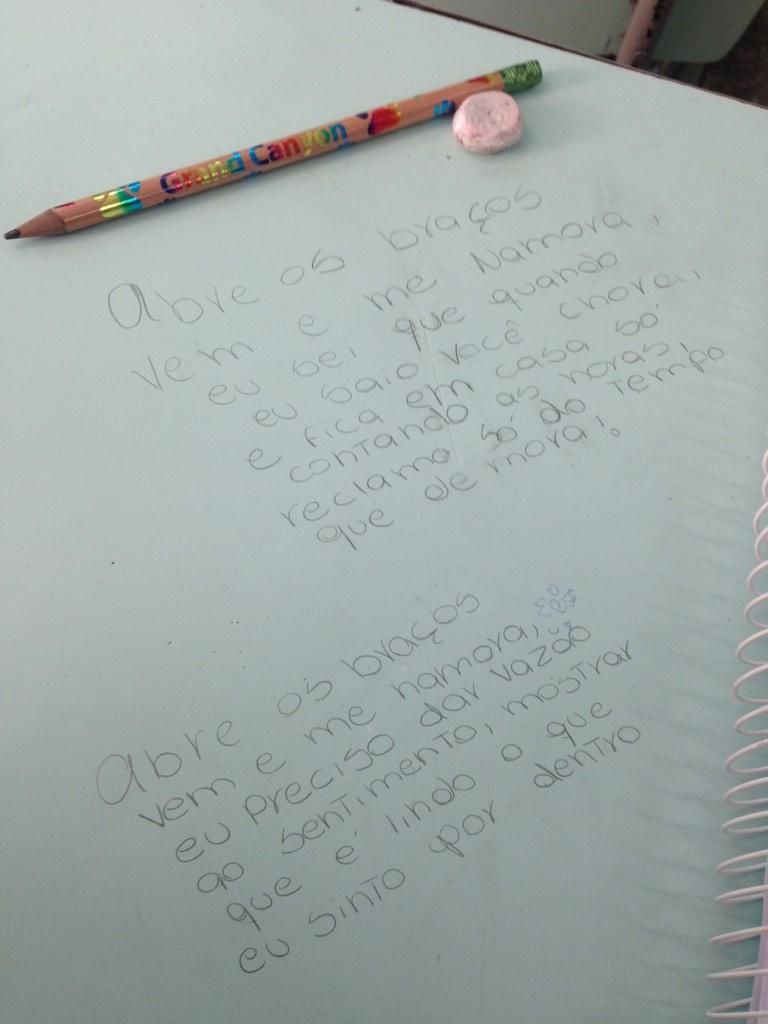 Grand Canyon
Abre os braços
vem e me Namora,
eu sei que quando
eu saio você chora,
e fica em casa só
contando as horas,
reclama só do tempo
que demora!
Abre os braços
vem e me namora,
eu preciso dar vazão
ao sentimento, mostrar
que é lindo o que
eu sinto por dentro